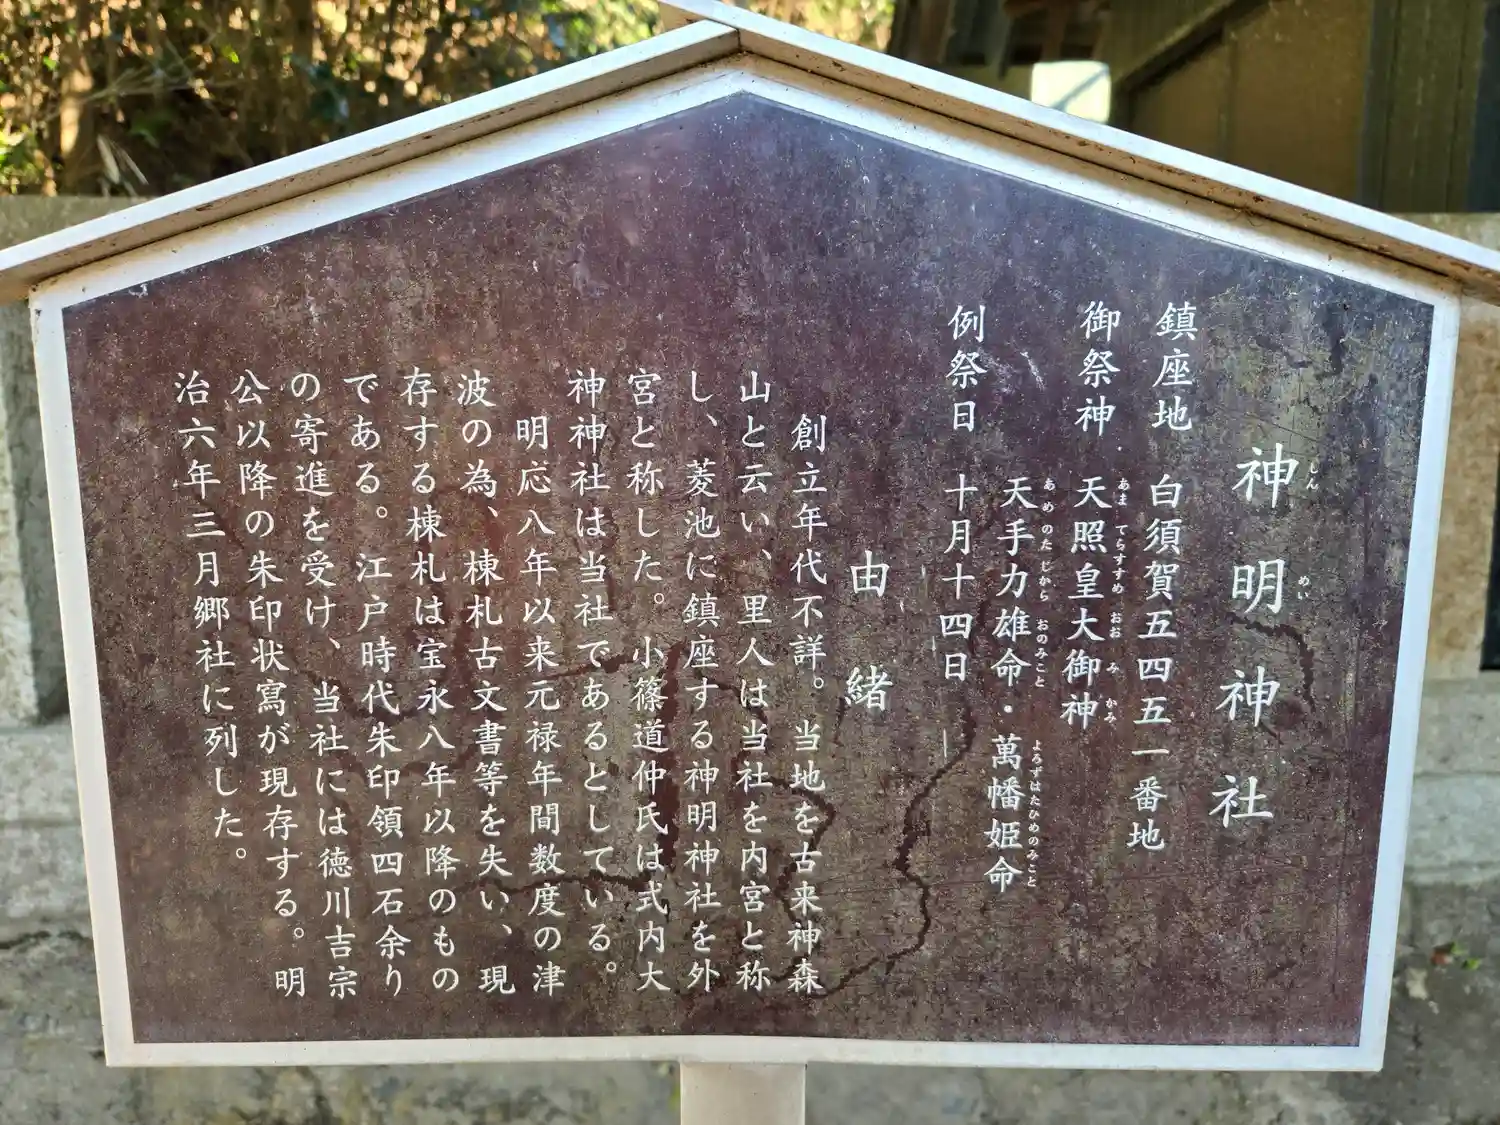 神明神社
しんめい
鎮座地 白須賀五四五一番地
御祭神 天照皇大御神
あまてらすすめおおみかみ
天手力雄命・萬幡姫命
あめのたじからおのみこと よろずはたひめのみこと
例祭日 十月十四日
由緒
創立年代不詳。当地を古来神森
山と云い、里人は当社を内宮と称
し、菱池に鎮座する神明神社を外
宮と称した。小篠道仲氏は式内大
神神社は当社であるとしている。
明応八年以来元禄年間数度の津
波の為、棟札古文書等を失い、現
存する棟札は宝永八年以降のもの
である。江戸時代朱印領四石余り
の寄進を受け、当社には徳川吉宗
公以降の朱印状寫が現存する。明
治六年三月郷社に列した。